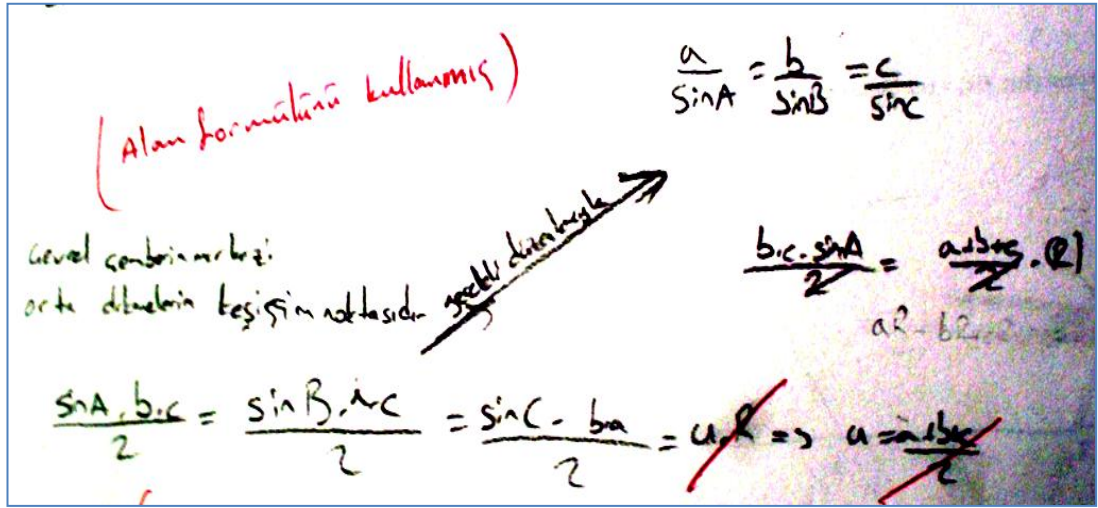 (Alan formülünü kullanmış)
a/sinA = b/sinB = c/sinC
Çevrel çemberin merkezi
orta dikmelerin kesişim noktasıdır
gerekli düzenlemeyle
b.c.sinA/2 = a+b+c/2 . (R)
sinA.b.c/2 = sinB.a.c/2 = sinC.b.a/2 = u.R => u = a+b+c/2